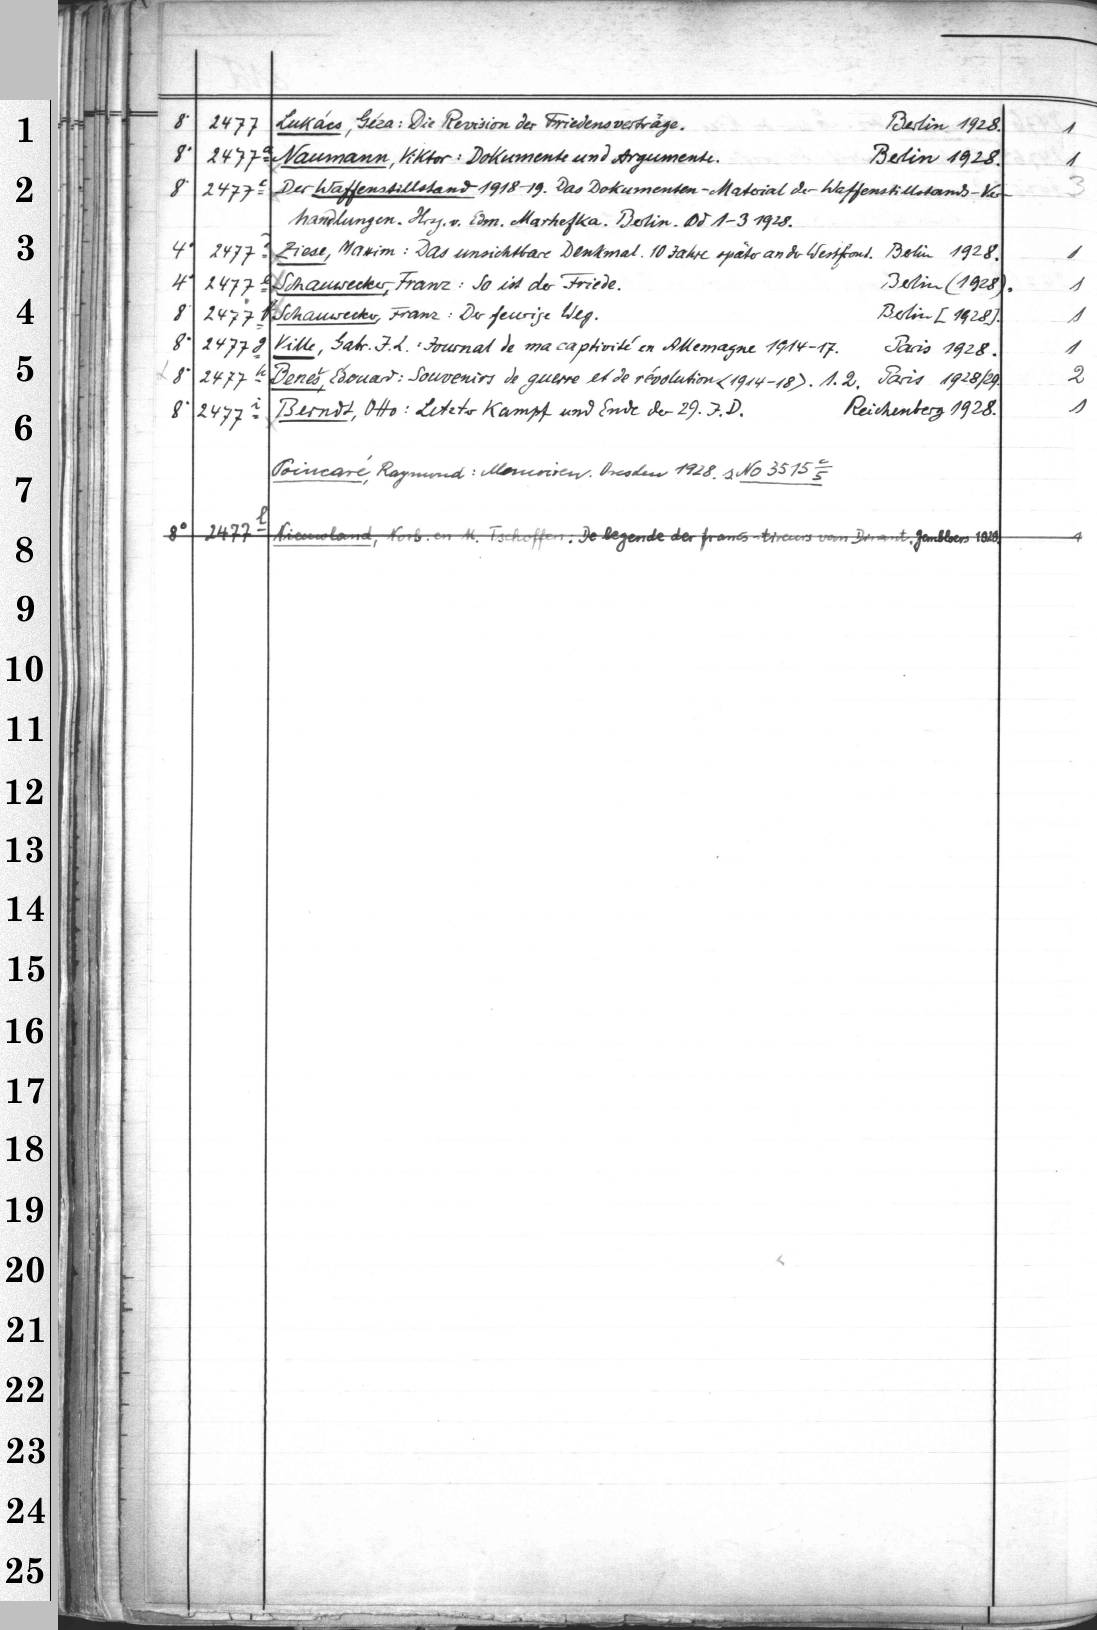 8° 2477 Lukács, Géza: Die Revision der Friedensverträge. Berlin 1928. 1
8° 2477a Naumann, Viktor: Dokumente und Argumente. Berlin 1928. 1
8° 2477c Der Waffenstillstand 1918-19. Das Dokumenten-Material der Waffenstillstands-Ver-
handlungen. Hrsg. v. Edm. Marhefka. Berlin. Bd 1-3 1928. 3
4° 2477 Ziese, Maxim: Das unsichtbare Denkmal. 10 Jahre später an der Westfront. Berlin 1928. 1
4° 2477e Schauwecker, Franz: So ist der Friede. Berlin (1928). 1
8° 2477f Schauwecker, Franz: Der feurige Weg. Berlin [1928]. 1
8° 2477g Ville, Gabr. J. L.: Journal de ma captivité en Allemagne 1914-17. Paris 1928. 1
8° 2477h Beneš, Edouard: Souvenirs de guerre et de révolution <1914-18>. 1.2. Paris 1928/29. 2
8° 2477i Berndt, Otto: Letzter Kampf und Ende der 29. J.D. Reichenberg 1928. 1
Poincaré, Raymond: Memoiren. Dresden 1928. s. No 3515 c/5
8° 2477l Nieuwland, Norb. en M. Tschoffen. De legende der francs-tireurs van Dinant. Gembloers 1929. 1
1
2
3
4
5
6
7
8
9
10
11
12
13
14
15
16
17
18
19
20
21
22
23
24
25